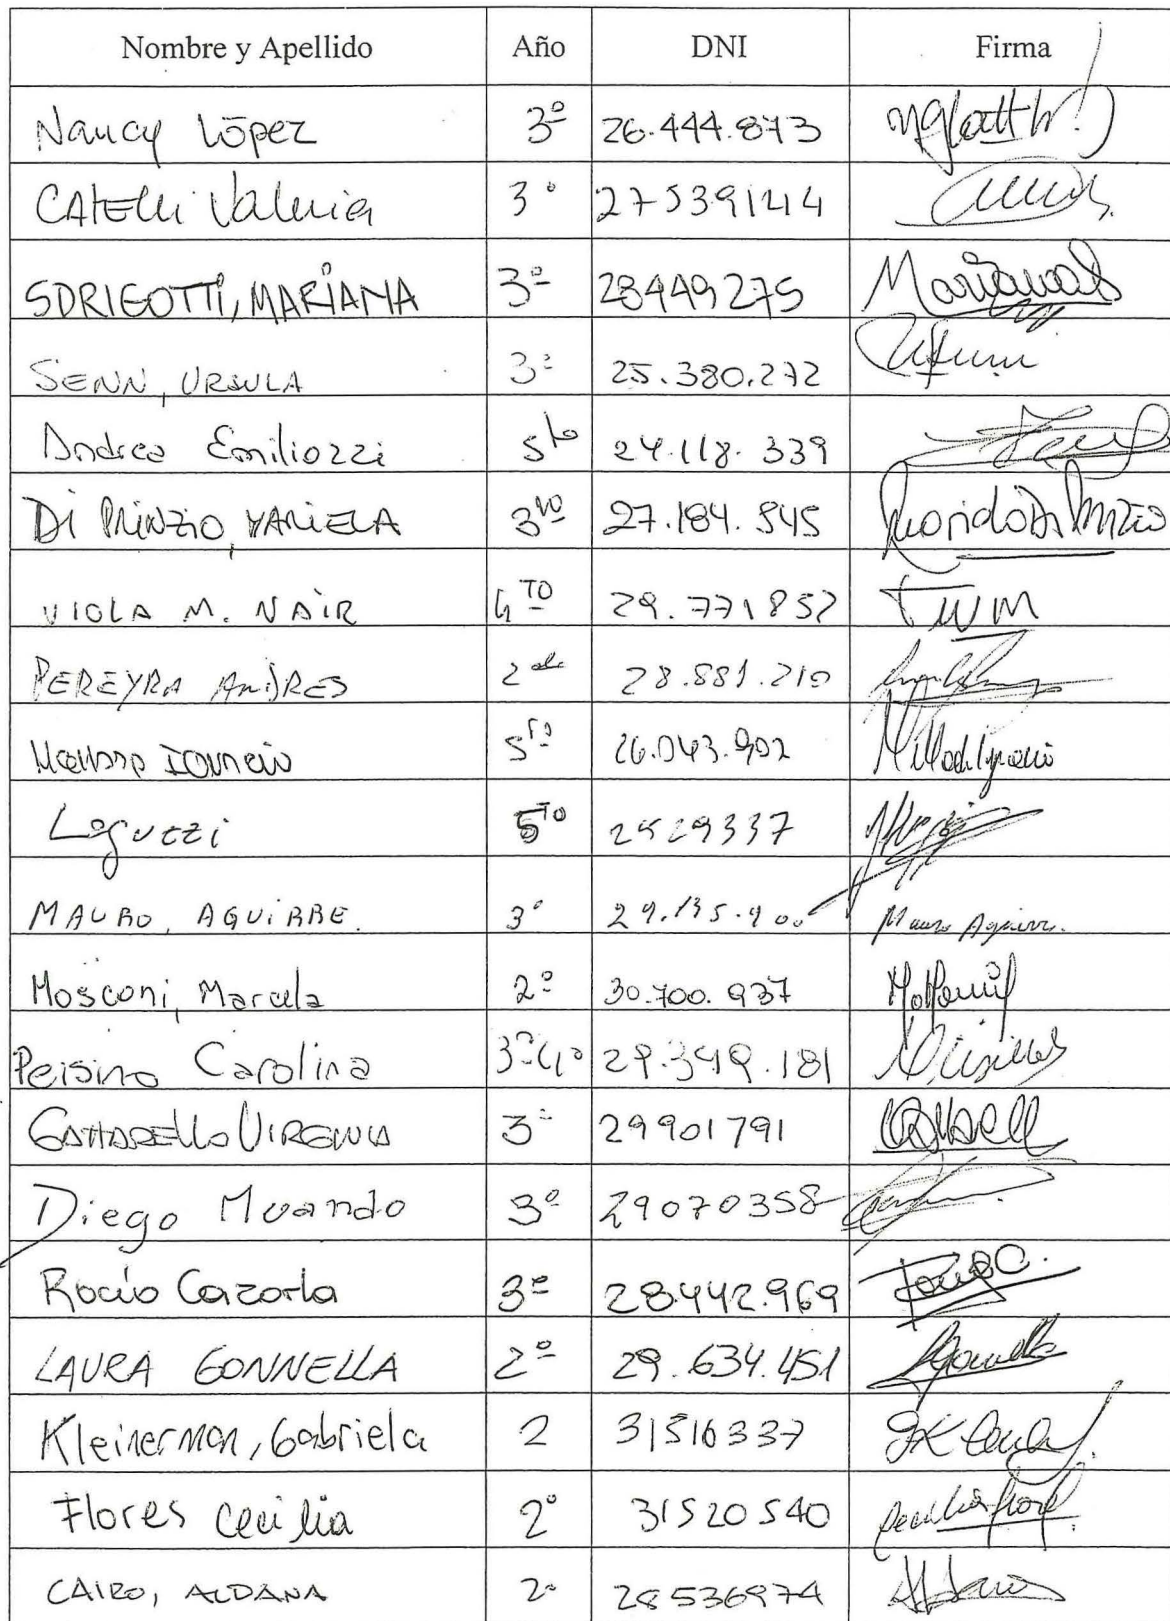 Nombre y Apellido Año DNI Firma
Nancy López 3º 26.444.873
CATELLI Valeria 3º 27539144
SDRIGOTTI, MARIANA 3º 28449275 Mariana
SENN, URSULA 3º 25.380.272
Andrea Emiliozzi 5to 24.118.339
DI PRINZIO, MARIELA 3ro 27.184.545
VIOLA M. NAIR 4TO 29.771852
PEREYRA ANDRES 2do 28.881.210
Ignacio 5to 26.043.902
Loguzzi 5TO
MAURO, AGUIRRE. 3º 29.135.900 Mauro Aguirre.
Mosconi, Marcela 2º 30.700.937
Peisino Carolina 3º4º 29.349.181
VIRGINIA 3º 29901791
Diego Muando 3º 29070358
Rocío Cazorla 3º 28.442.969
LAURA GONNELLA 2º 29.634.451
Kleinerman, Gabriela 2 31516337
Flores Cecilia 2º 31520540 Cecilia Flores
CAIRO, ALDANA 2º 28536974